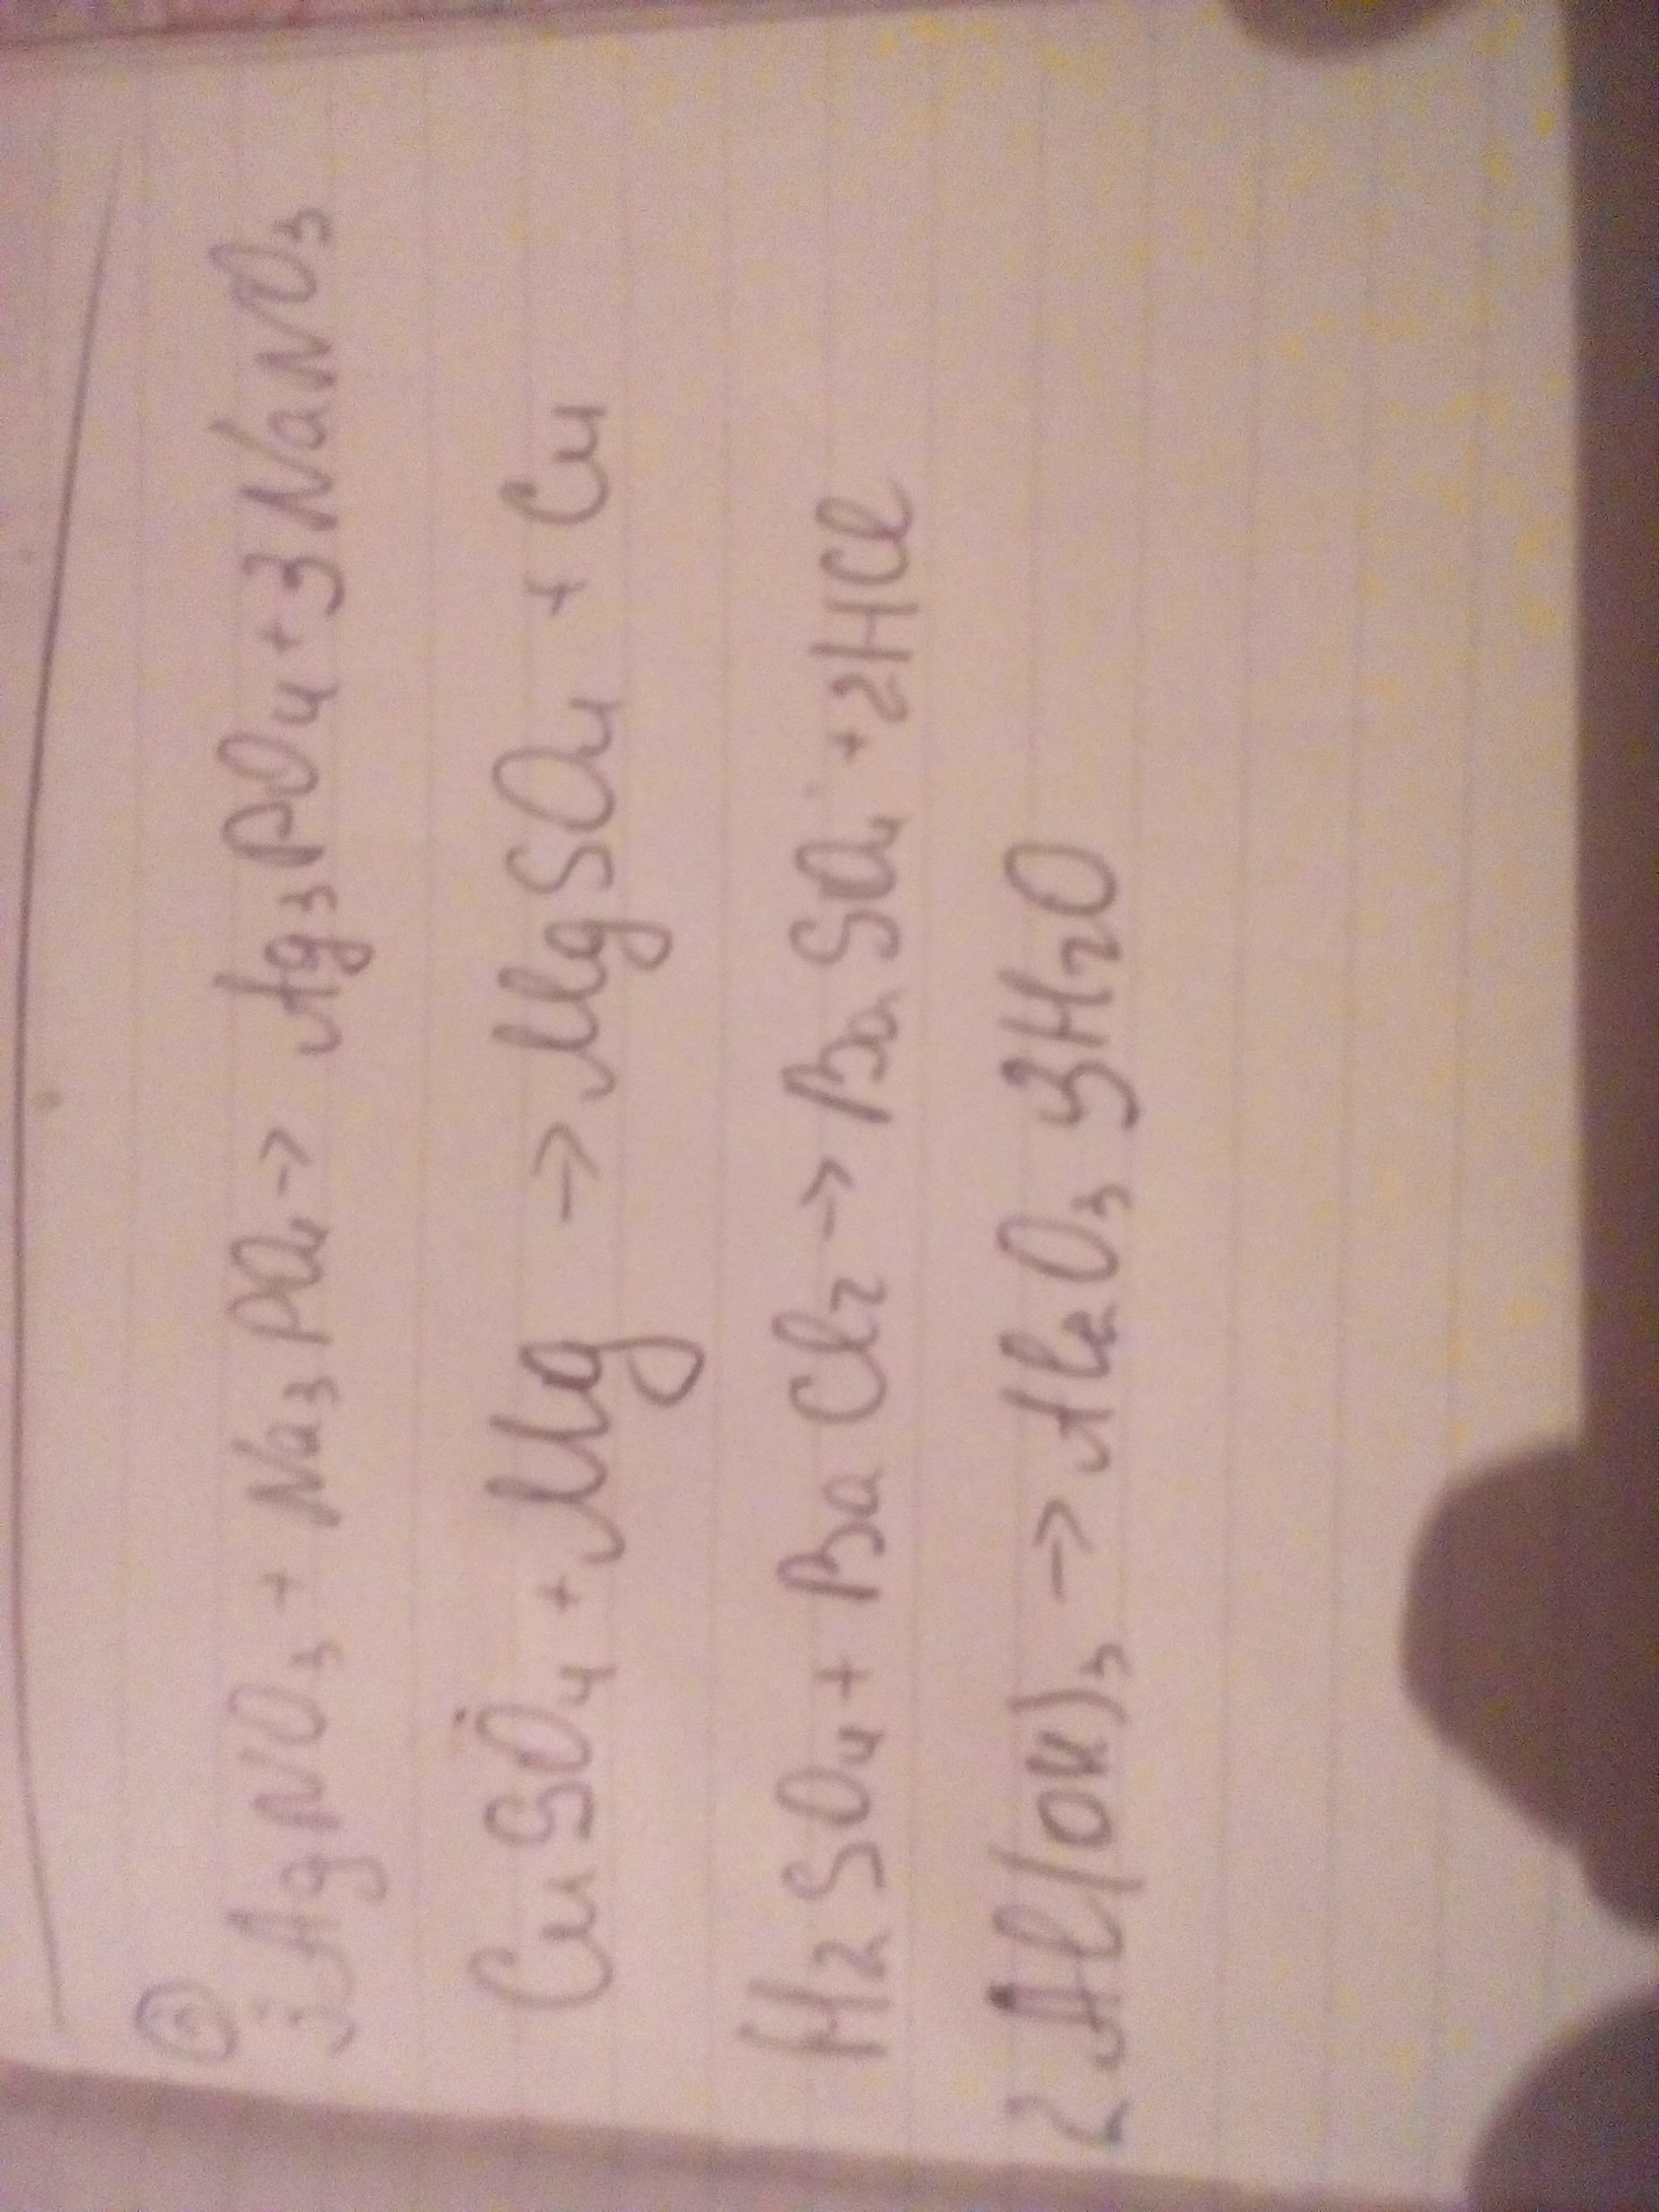 ②
3AgNO₃ + Na₃PO₄ → Ag₃PO₄ + 3NaNO₃
CuSO₄ + Mg → MgSO₄ + Cu
H₂SO₄ + BaCl₂ → BaSO₄ + 2HCl
2Al(OH)₃ → Al₂O₃ 3H₂O